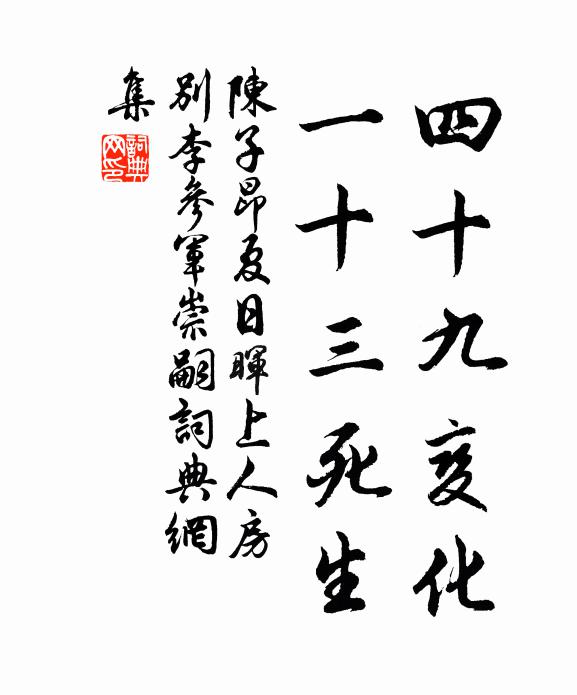 四十九变化
一十三死生
陳子昂夏日暉上人房
別李參軍崇嗣詞典網
集
詞典网印